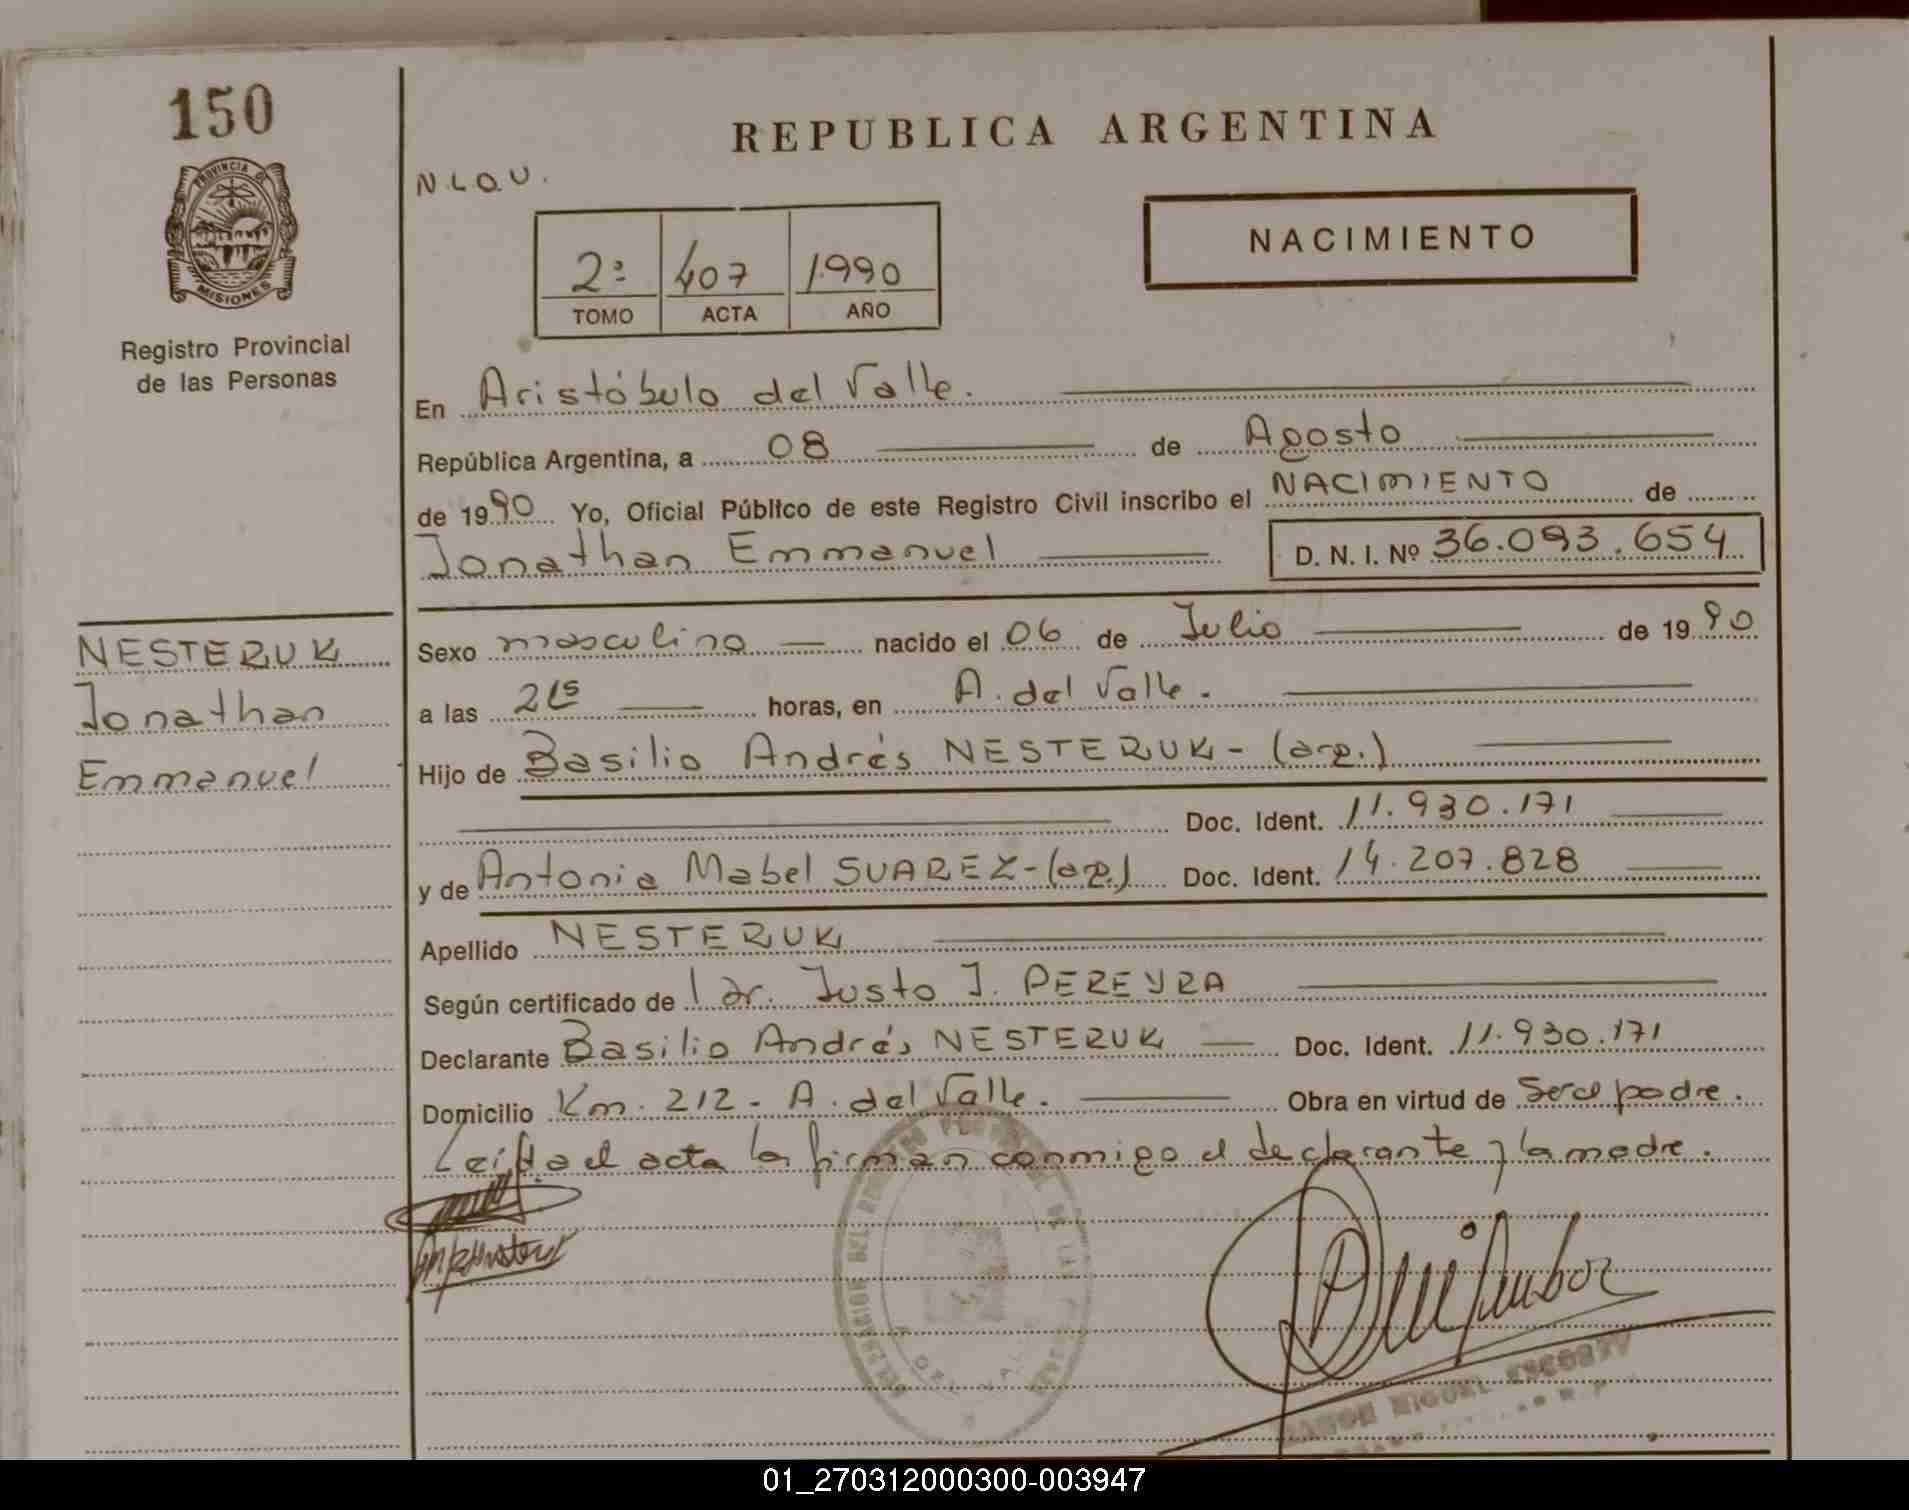 150
PROVINCIA DE
MISIONES
Registro Provincial
de las Personas
NESTERUK
Jonathan
Emmanuel
REPUBLICA ARGENTINA
N.L.Q.U.
2º 407 1990
TOMO ACTA AÑO
NACIMIENTO
En Aristóbulo del Valle.
República Argentina, a 08 de Agosto
de 1990 Yo, Oficial Público de este Registro Civil inscribo el NACIMIENTO de
Jonathan Emmanuel D. N. I. Nº 36.093.654
Sexo masculino nacido el 06 de Julio de 1990
a las 21s horas, en A. del Valle.
Hijo de Basilio Andrés NESTERUK - (arg.)
Doc. Ident. 11.930.171
y de Antonia Mabel SUAREZ - (arg.) Doc. Ident. 14.207.828
Apellido NESTERUK
Según certificado de Dr. Justo J. PEREYRA
Declarante Basilio Andrés NESTERUK Doc. Ident. 11.930.171
Domicilio Km. 212 - A. del Valle. Obra en virtud de ser el padre.
Leída el acta la firman conmigo el declarante y la madre.
DELEGACION DEL REGISTRO PROVINCIAL DE LAS
A. DEL VALLE
RAMON MIGUEL
01_270312000300-003947